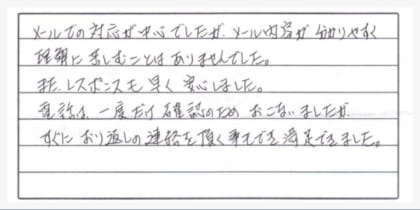 メールでの対応が中心でしたが、メール内容が分かりやすく
理解に苦しむことはありませんでした。
また、レスポンスも早く安心しました。
電話は、一度だけ確認のためおこないましたが、
すぐにおり返しの連絡を頂く事もでき満足できました。